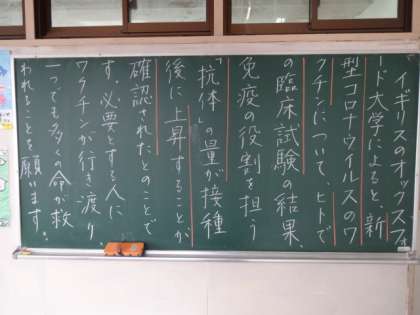 イギリスのオックスフォ
ード大学によると、新
型コロナウイルスのワ
クチンについて、ヒトで
の臨床試験の結果、
免疫の役割を担う
「抗体」の量が接種
後に上昇することが
確認されたとのことで
す。必要とする人に
ワクチンが行き渡り、
一つでも多くの命が救
われることを願います。